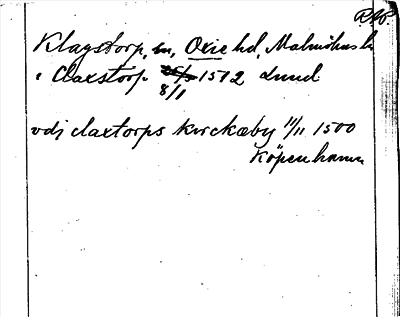 Klagstorp, sn, Oxie hd, Malmöhus l.
i Claxstorp 1512 Lund
8/1
vdj claxtorps kirckæby 11/11 1500
Köpenhamn